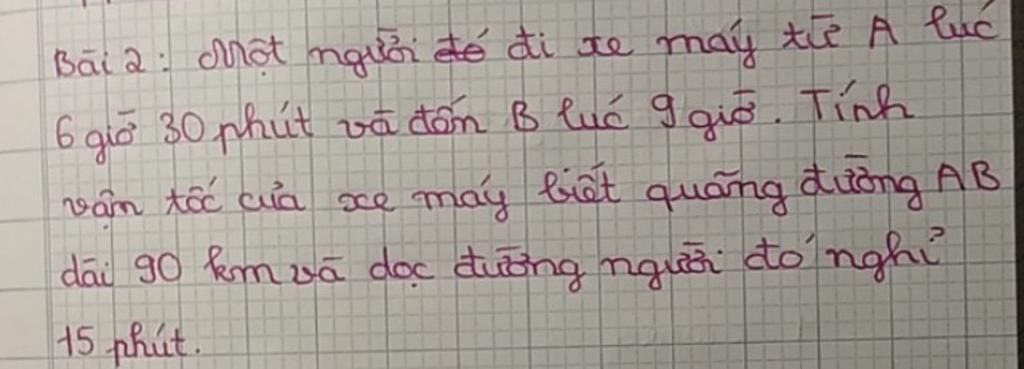 Bài 2: Một người đi xe máy từ A lúc
6 giờ 30 phút và đến B lúc 9 giờ. Tính
vận tốc của xe máy biết quãng đường AB
dài 90 km và dọc đường người đó nghỉ
15 phút.